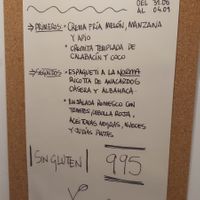 DEL 31.08
AL 04.09
PRIMEROS: • CREMA FRÍA MELÓN, MANZANA
Y APIO
• CREMITA TEMPLADA DE
CALABACÍN Y COCO
SEGUNDOS: • ESPAGUETI A LA NORMA
RICOTTA DE ANACARDOS
CASERA Y ALBAHACA
• ENSALADA ROMESCO CON
TOMATES, CEBOLLA ROJA,
ACEITUNAS NEGRAS, NUECES
Y JUDÍAS PINTAS
SIN GLUTEN
995